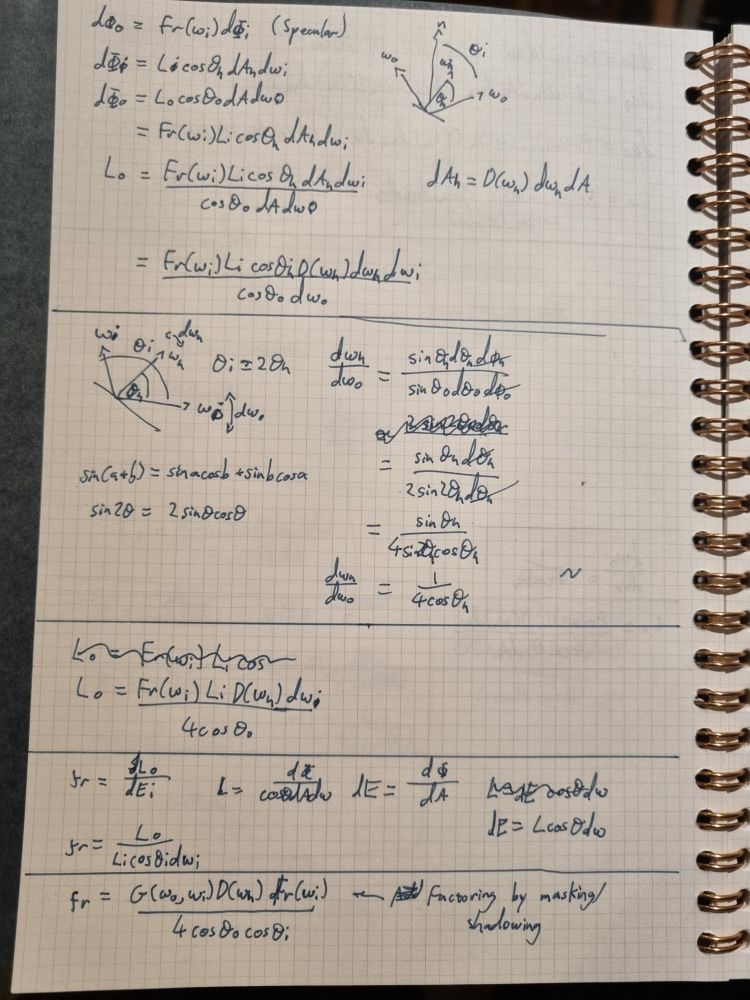 dΦo = Fr(ωi) dΦi (Specular)
dΦi = Li cosθh dAh dωi
dΦo = Lo cosθo dA dωo
= Fr(ωi) Li cosθh dAh dωi
Lo = Fr(ωi) Li cosθh dAh dωi / cosθo dA dωo
dAh = D(ωh) dωh dA
= Fr(ωi) Li cosθh D(ωh) dωh dωi / cosθo dωo
n
θi
ωo
ωh
θh
ωo
ωi
θi
dωh
ωh
θh
ωo
dωo
θi = 2θh
dωh/dωo = sinθh dθh dφh / sinθo dθo dφo
= sinθh dθh / 2 sin2θh dθh
sin(a+b) = sinacosb + sinbcosa
sin2θ = 2sinθcosθ
= sinθh / 4sinθh cosθh
dωh/dωo = 1 / 4cosθh
~
Lo = Fr(ωi) Li cos
Lo = Fr(ωi) Li D(ωh) dωi / 4cosθo
fr = dLo/dEi
L = dΦ / cosθdAdω
dE = dΦ/dA
dE = Lcosθdω
fr = Lo / Li cosθi dωi
fr = G(ωo, ωi) D(ωh) Fr(ωi) / 4 cosθo cosθi
← Factoring by masking/
shadowing